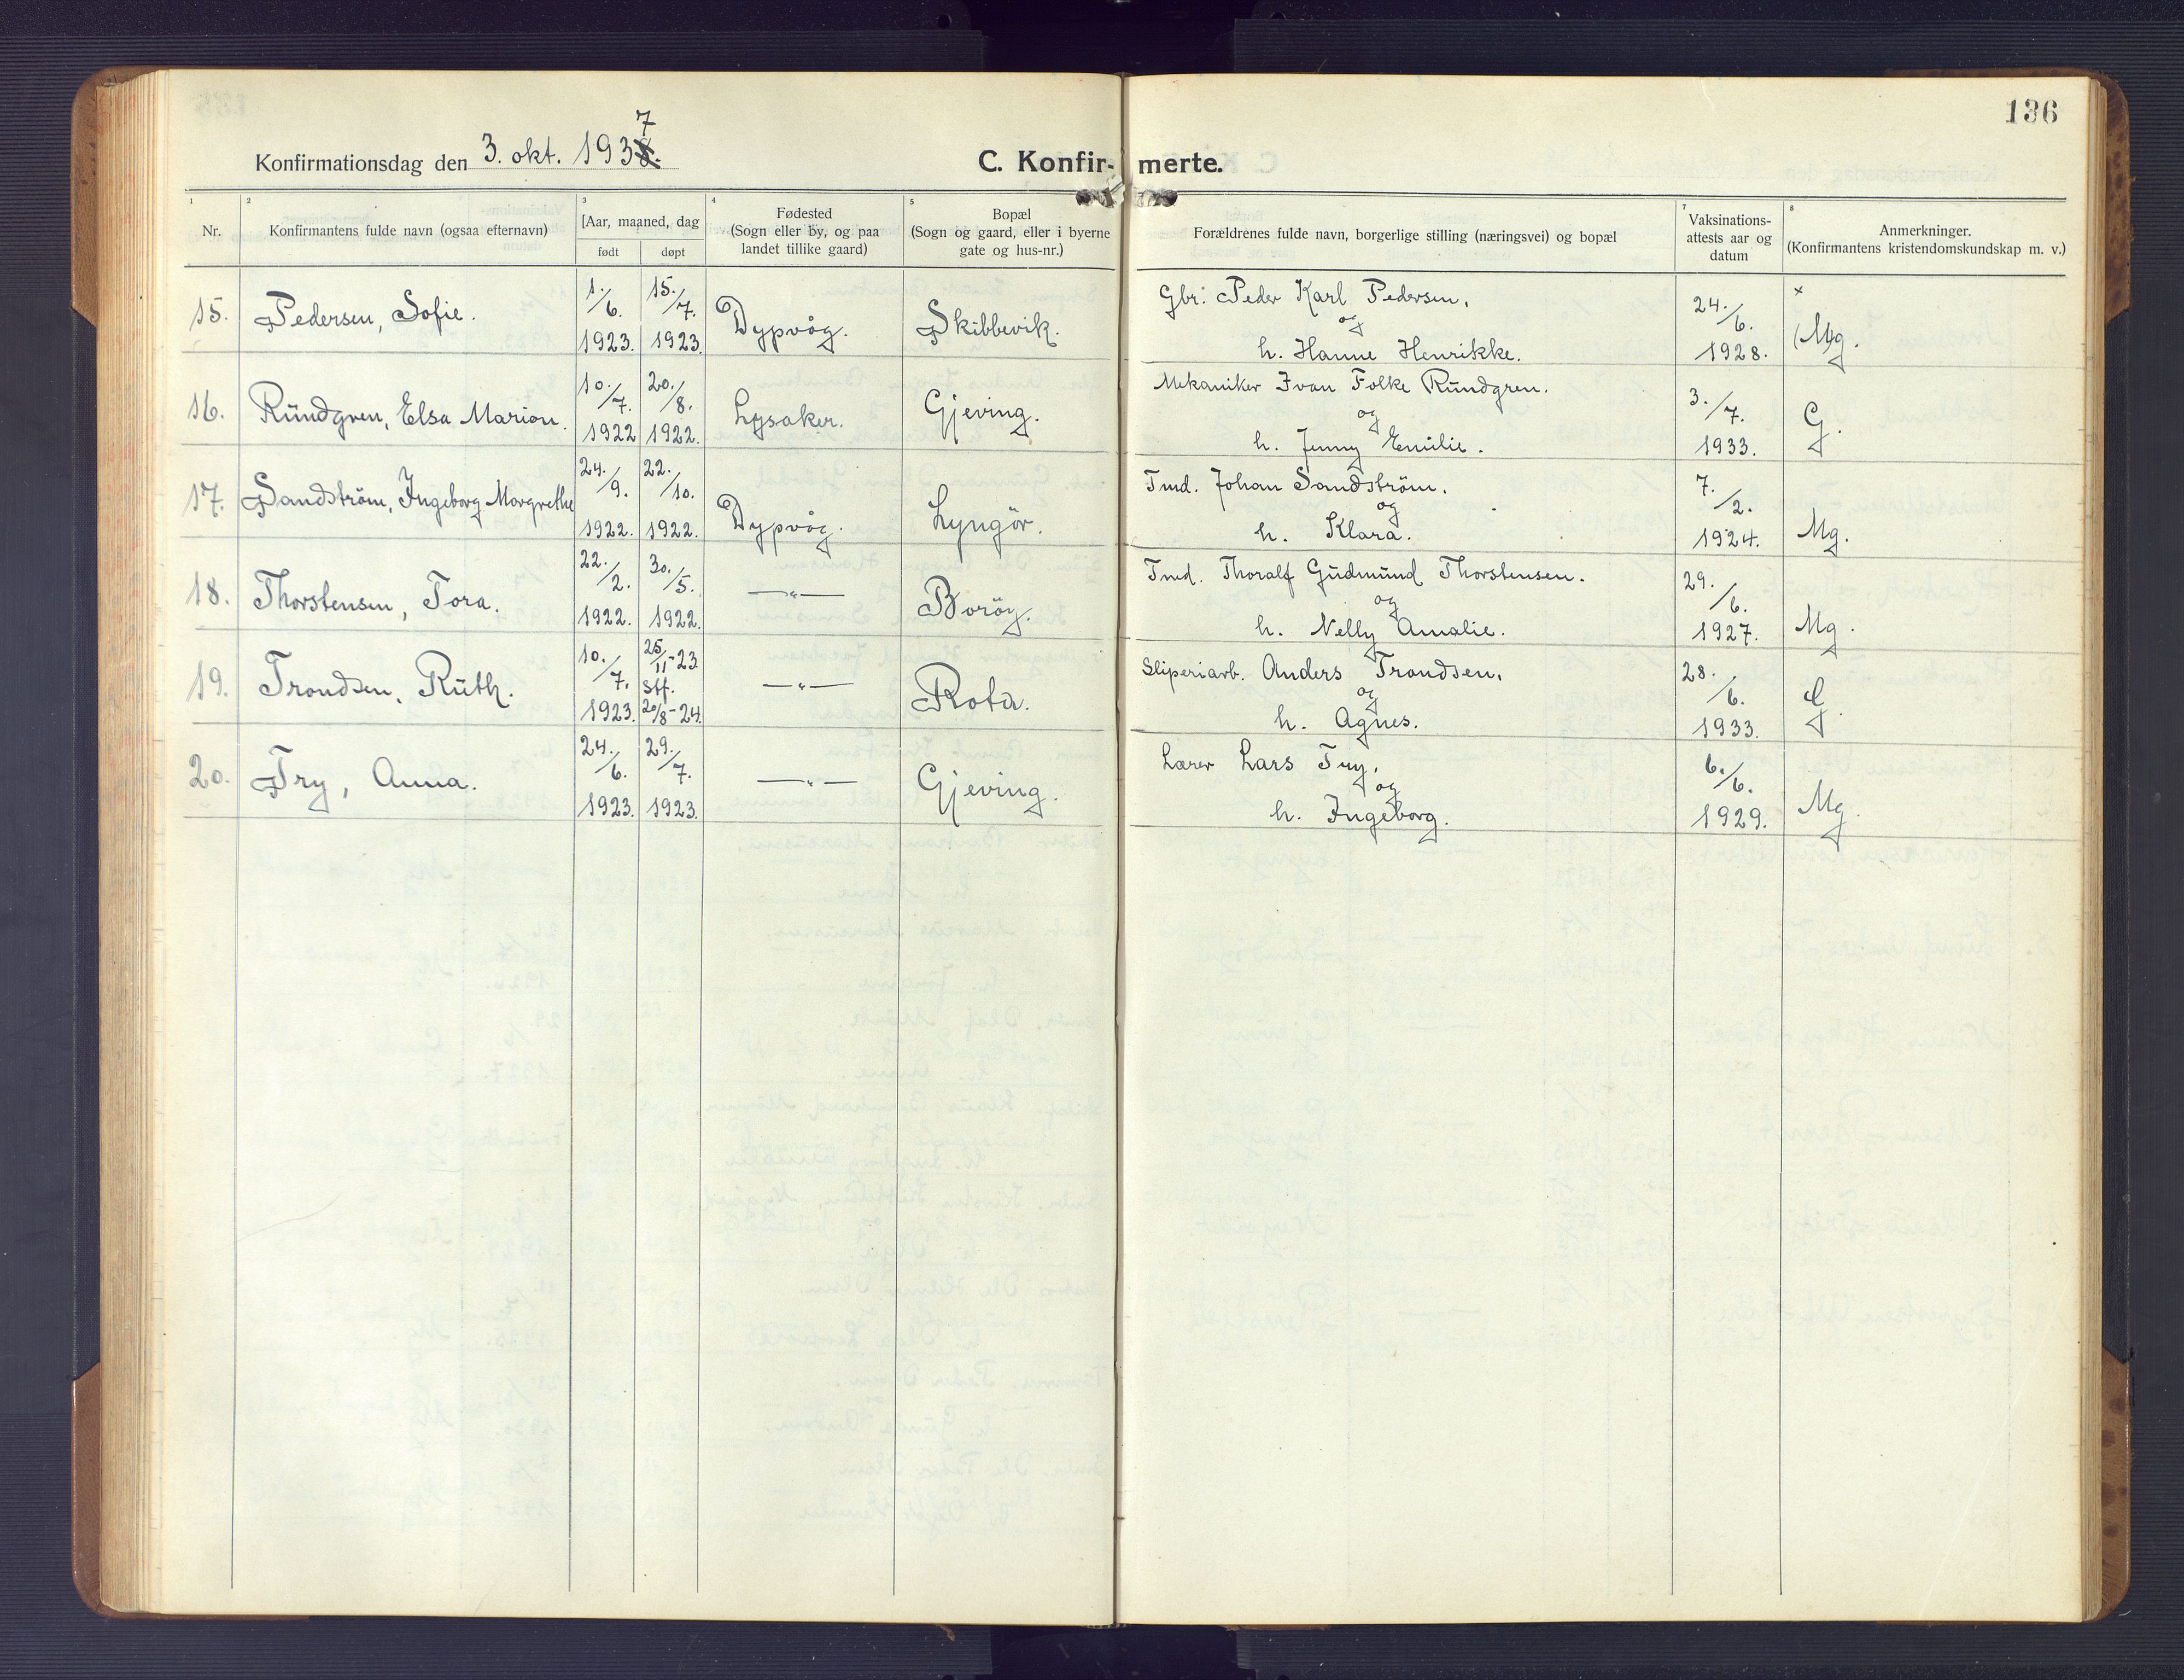 136
Konfirmationsdag den 3. okt. 1937
C. Konfirmerte.
1 2 3 4 5 7 8
Nr.
Konfirmantens fulde navn (ogsaa efternavn)
[Aar, maaned, dag
født døpt
Fødested
(Sogn eller by, og paa
landet tillike gaard)
Bopæl
(Sogn og gaard, eller i byerne
gate og hus-nr.)
Forældrenes fulde navn, borgerlige stilling (næringsvei) og bopæl
Vaksinations-
attests aar og
datum
Anmerkninger.
(Konfirmantens kristendomskundskap m. v.)
15. Pedersen, Sofie. 1./6. 1923. 15./7. 1923. Dypvåg. Skibbevik. Gbr. Peder Karl Pedersen,
og
h. Hanne Henrikke. 24./6. 1928. × (Mg.
16. Rundgren, Elsa Marion. 10./7. 1922 20./8. 1922. Lysaker. Gjeving. Mekaniker Ivan Folke Rundgren.
og
h. Jenny Emilie. 3./7. 1933. G.
17. Sandström, Ingeborg Margrethe 24./9. 1922. 22./10. 1922. Dypvåg. Lyngör. Tmd. Johan Sandström.
og
h. Klara. 7./2. 1924. Mg.
18. Thorstensen, Tora. 22./2. 1922. 30./5. 1922. —"— Boröy. Tmd. Thoralf Gudmund Thorstensen.
og
h. Nelly Amalie. 29./6. 1927. Mg.
19. Trondsen, Ruth. 10./7. 1923. 25/11-23 stf. 20/8-24. —"— Rota. Sliperiarb. Anders Trondsen,
og
h. Agnes. 28./6. 1933. G.
20. Try, Anna. 24./6. 1923. 29./7. 1923. —"— Gjeving. Lærer Lars Try,
og
h. Ingeborg. 6./6. 1929. Mg.